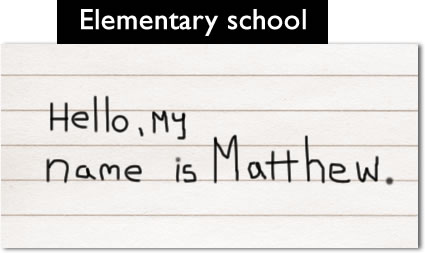 Elementary school
Hello, My
name is Matthew.